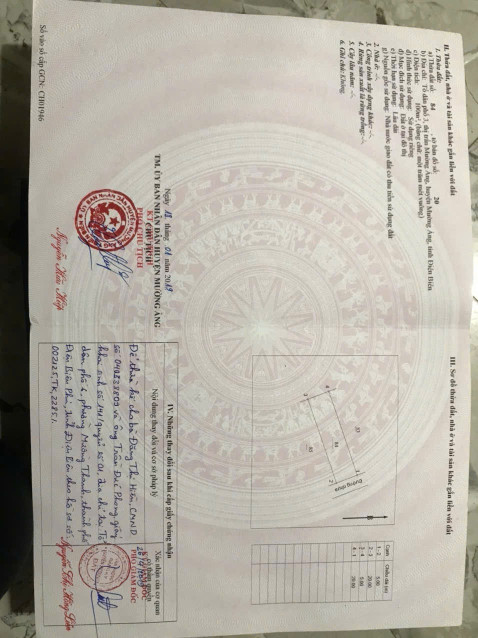 II. Thửa đất, nhà ở và tài sản khác gắn liền với đất
1. Thửa đất:
a) Thửa đất số: 84 , tờ bản đồ số: 20
b) Địa chỉ: Tổ dân phố 3, thị trấn Mường Ảng, huyện Mường Ảng, tỉnh Điện Biên
c) Diện tích: 100m², (bằng chữ: một trăm mét vuông)
d) Hình thức sử dụng: Sử dụng riêng
đ) Mục đích sử dụng: Đất ở tại đô thị
e) Thời hạn sử dụng: Lâu dài
g) Nguồn gốc sử dụng: Nhà nước giao đất có thu tiền sử dụng đất
2. Nhà ở: -/-.
3. Công trình xây dựng khác: -/-.
4. Rừng sản xuất là rừng trồng: -/-.
5. Cây lâu năm: -/-.
6. Ghi chú: Không.
Ngày 18 tháng 01 năm 2019
TM. ỦY BAN NHÂN DÂN HUYỆN MƯỜNG ẢNG
KT. CHỦ TỊCH
PHÓ CHỦ TỊCH
Số vào sổ cấp GCN: CH01946
III. Sơ đồ thửa đất, nhà ở và tài sản khác gắn liền với đất
84
Cạnh Chiều dài (m)
1 - 2 5.00
2 - 3 20.00
3 - 4 5.00
4 - 1 20.00
IV. Những thay đổi sau khi cấp giấy chứng nhận
Nội dung thay đổi và cơ sở pháp lý
Xác nhận của cơ quan
có thẩm quyền
Để thừa kế cho bà Đặng Thị Hiền, CMND
số: 040828803 và ông Trần Đức Phong, giấy
khai sinh số 141 quyển số 01, địa chỉ tại Tổ
dân phố 4, phường Mường Thanh, thành phố
Điện Biên Phủ, tỉnh Điện Biên theo hồ sơ số
002125.TK.2285.1.
PHÓ GIÁM ĐỐC